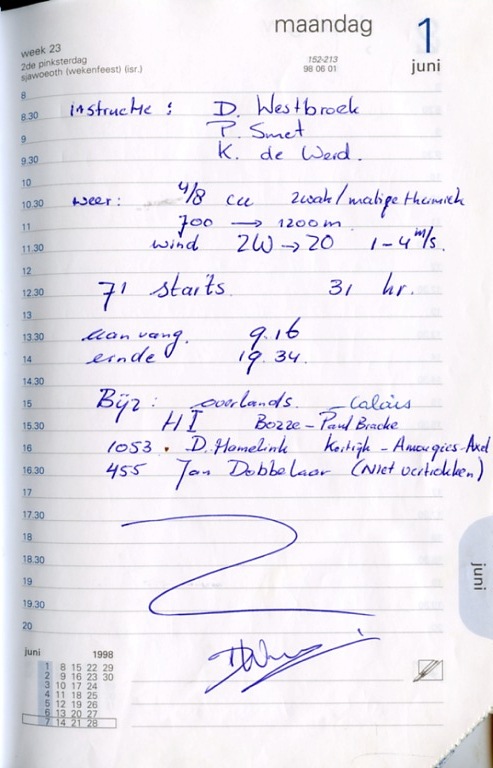 maandag 1
week 23
2de pinksterdag
sjawoeoth (wekenfeest) (isr.)
152-213
98 06 01
juni
8
8.30 instructie : D. Westbroek
9 P. Smet
9.30 K. de Werd.
10
10.30 weer: 4/8 cu zwak/matige thermiek
11 700 → 1200 m
11.30 wind ZW → ZO 1-4 m/s.
12
12.30 71 starts. 31 hr.
13
13.30 aanvang. 9.16
14 einde 19.34.
14.30
15 Bijz: overlands. - Calais
15.30 HI Bozze - Paul Bracke
16 1053 D. Hamelink Kortrijk - Amougies - Axel
16.30 455 Jan Dobbelaar (Niet vertrokken)
17
17.30
18
18.30
19
19.30
20
juni
juni 1998
1 8 15 22 29
2 9 16 23 30
3 10 17 24
4 11 18 25
5 12 19 26
6 13 20 27
7 14 21 28